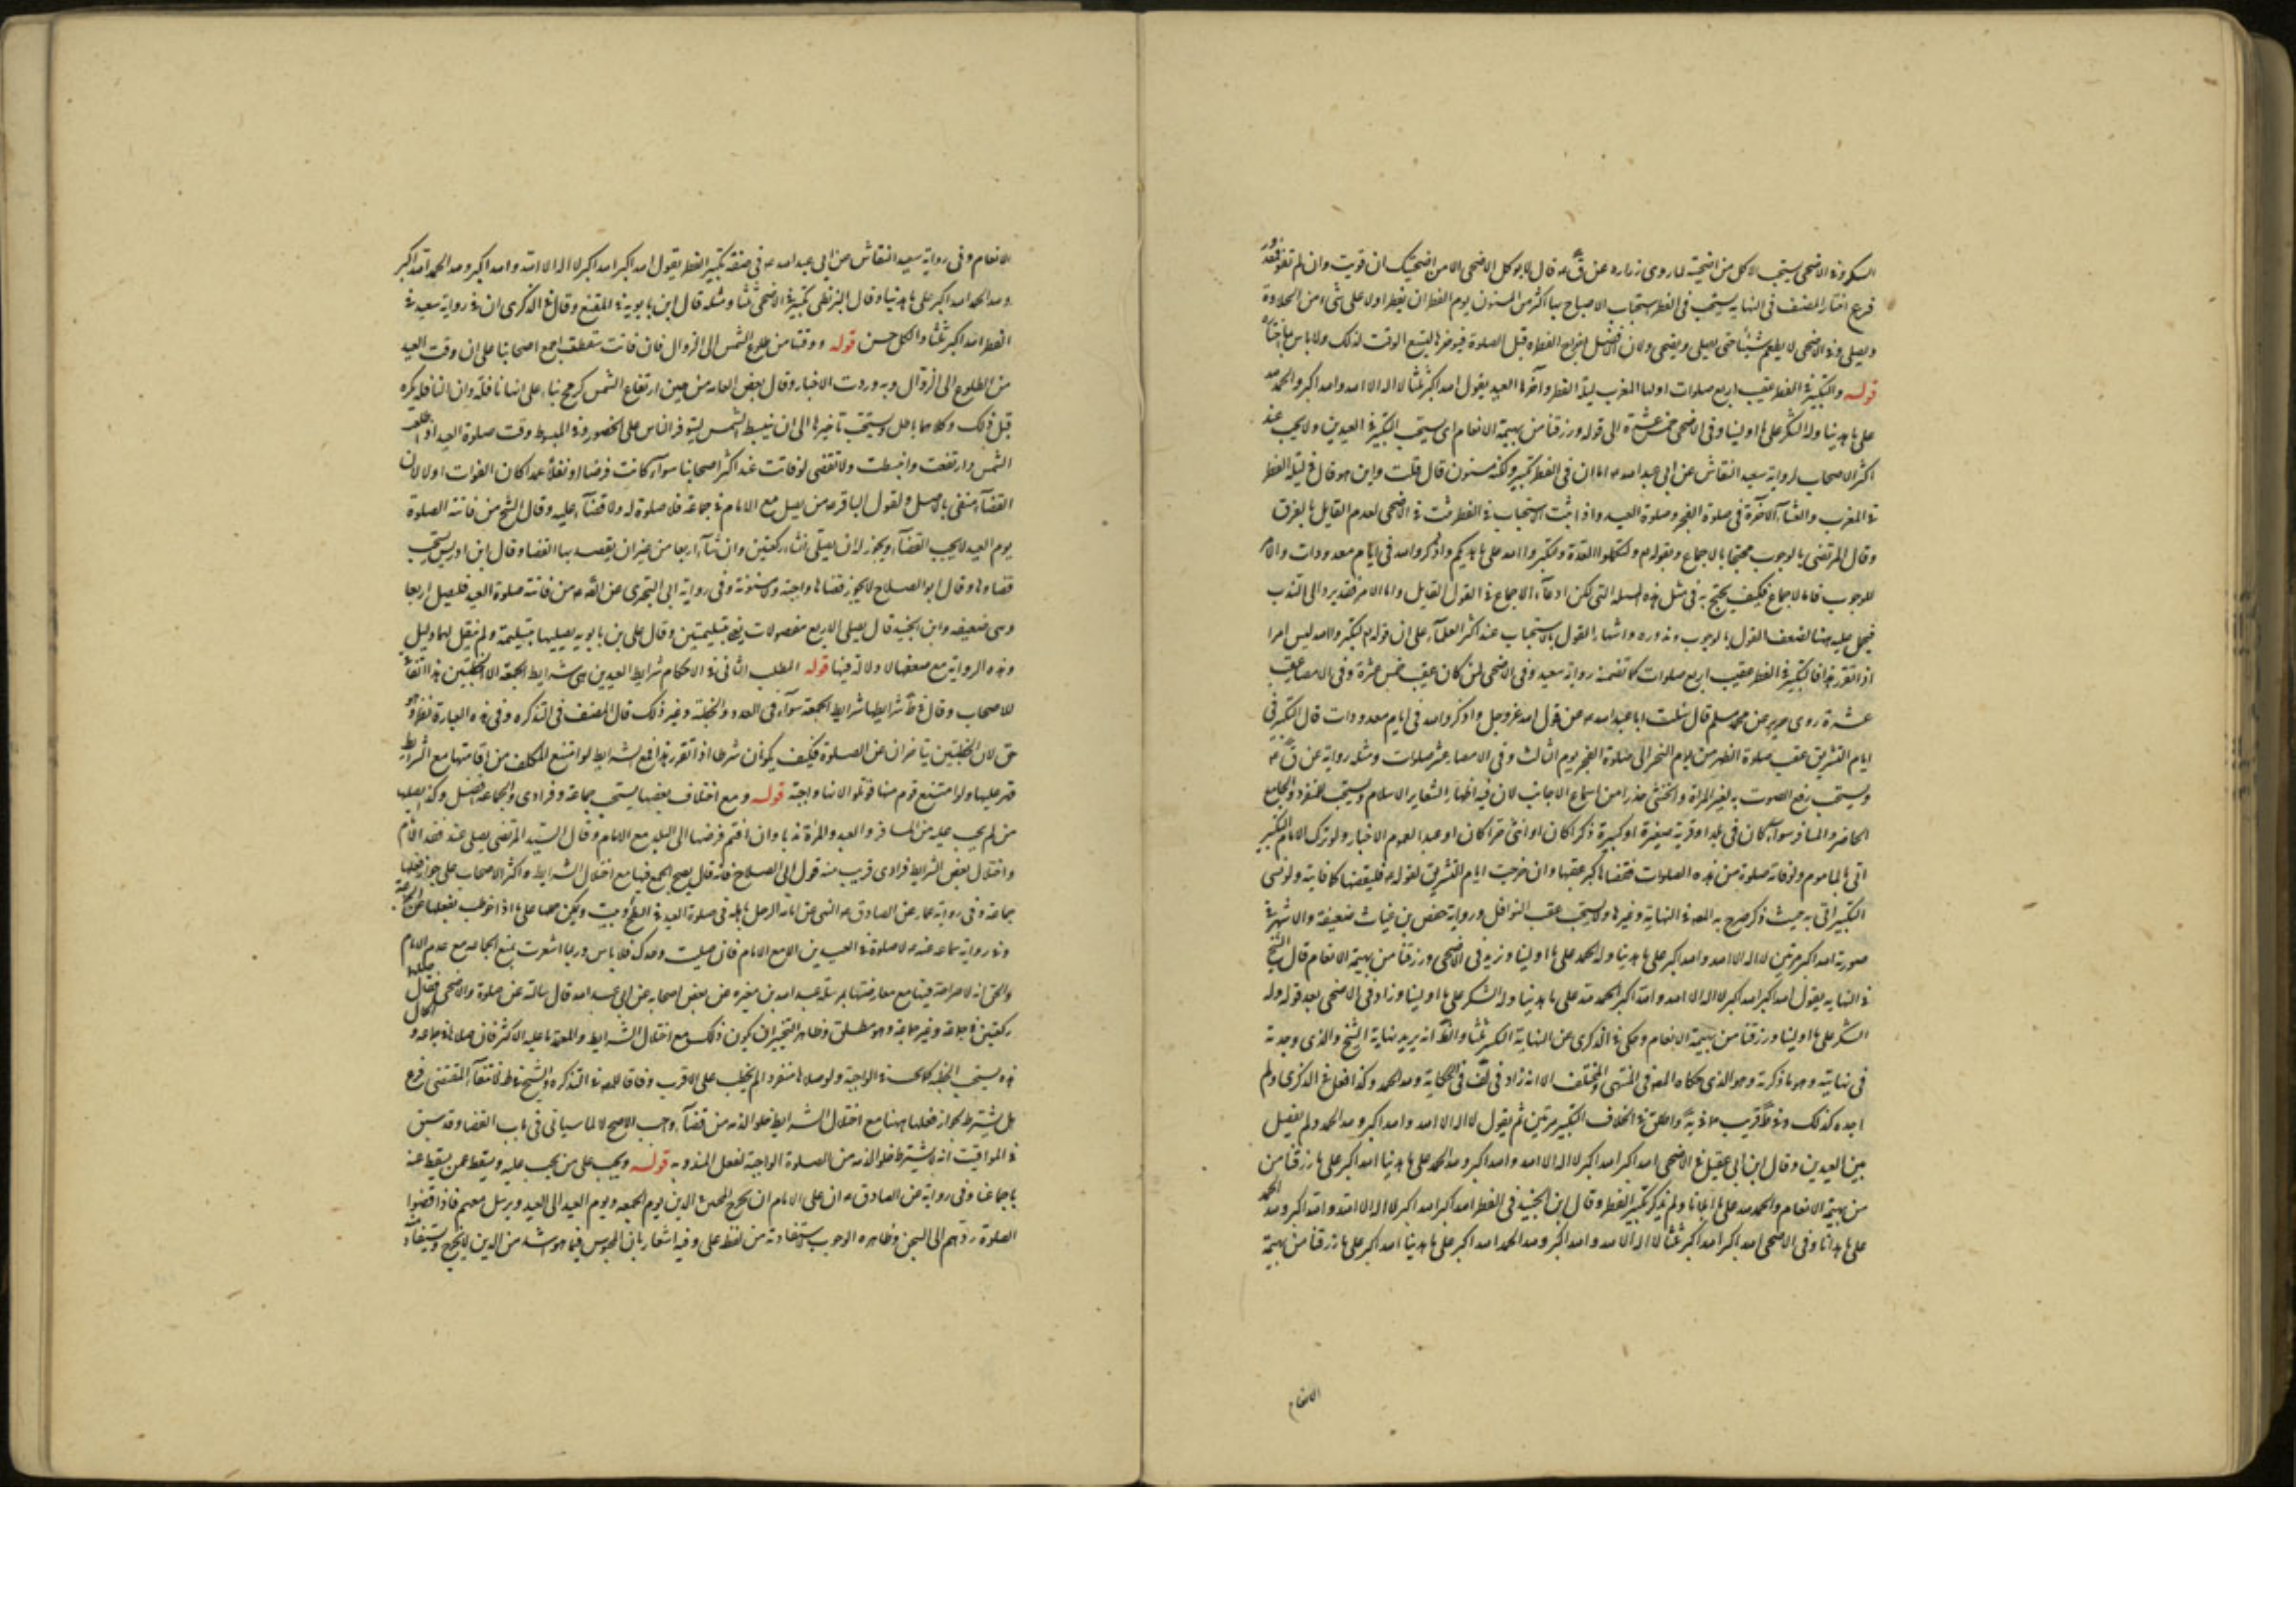 السكر وفى الاضحى يستحب الاكل من اضحيته لما روى زراره عن ق ع قال لا يوكل الاضحى الا من اضحيتك ان قويت وان لم تقو فعذور
فرع اختار المصنف فى النهايه يستحب فى الفطر استحباب الاصباح بها اكثر من المسنون يوم الفطر ان يفطر اولا على شىء من الحلاوة
ويصلى وفى الاضحى لا يطعم شيئا حتى يصلى ويضحى ولان الافضل اخراج الفطره قبل الصلوة فيوخرها ليتسع الوقت لذلك ولا باس
قوله والتكبير فى الفطر عقيب اربع صلوات اولها المغرب ليلة الفطر وآخرها العيد يقول الله اكبر ثلثا لا اله الا الله والله اكبر والحمد لله
على ما هدينا وله الشكر على ما اولينا وفى الاضحى خمس عشرة الى قوله ورزقنا من بهيمة الانعام اى يستحب التكبير فى العيدين ولا يجب عند
اكثر الاصحاب لرواية سعيد النقاش عن ابى عبد الله ع اما ان فى الفطر تكبير ولكنه مسنون قال قلت واين هو قال فى ليلة الفطر
فى المغرب والعشاء الآخرة فى صلوة الفجر وصلوة العيد واذا ثبت الاستحباب فى الفطر ثبت فى الاضحى لعدم القايل بالفرق
وقال المرتضى بالوجوب محتجا بالاجماع وبقوله ولتكملوا العدة ولتكبروا الله على ما هديكم واذكروا الله فى ايام معدودات والامر
للوجوب فاما الاجماع فكيف يحتج به فى مثل هذه المسله التى يمكن ادعآء الاجماع فى القول القايل واما الامر فقد يرد الى الندب
فيحمل عليه هنا لضعف القول بالوجوب وندوره واشتهار القول بالاستحباب عند اكثر العلمآء على ان قوله لتكبروا الله ليس امرا
اذا تقرر هذا فالتكبير فى الفطر عقيب اربع صلوات كما تضمنه رواية سعيد وفى الاضحى لمن كان عقيب خمس عشرة وفى الامصار عقيب
عشرة روى حريز عن محمد بن مسلم قال سئلت ابا عبد الله ع عن قول الله عز وجل واذكروا الله فى ايام معدودات قال التكبير فى
ايام التشريق عقيب صلوة الظهر من يوم النحر الى صلوة الفجر يوم الثالث وفى الامصار عشر صلوات ومثله رواية عن ق ع
ويستحب رفع الصوت به لغير المراة والخنثى حذرا من اسماع الاجانب لان فيه اظهار الشعاير الاسلام ويستحب للمنفرد والجامع
الحاضر والمسافر سواء كان فى بلد او قرية صغيرة او كبيرة ذكرا كان او انثى حرا كان او عبدا لعموم الاخبار ولو ترك الامام التكبير
اتى به الماموم ولو فاته صلوة من هذه الصلوات فقضاها كبر عقبها وان خرجت ايام التشريق لقوله ع فليقضها كما فاتته ولو نسى
التكبير اتى به حيث ذكر صرح به المصه فى النهاية وغيرها ولا يستحب عقب النوافل ورواية حفص بن غياث ضعيفة والاشهر فى
صورته الله اكبر مرتين لا اله الا الله والله اكبر على ما هدينا وله الحمد على ما اولينا وزيد فى الاضحى ورزقنا من بهيمة الانعام قال الشيخ
فى النهايه يقول الله اكبر الله اكبر لا اله الا الله والله اكبر الحمد لله على ما هدينا وله الشكر على ما اولينا وزاد فى الاضحى بعد قوله وله
الشكر على ما اولينا ورزقنا من بهيمة الانعام وحكى فى الذكرى عن النهاية التكبير ثلثا والظ انه يريد نهاية الشيخ والذى وجدته
فى نهايته وهو ما ذكرته وهو الذى حكاه المصه فى المنتهى والمختلف الا انه زاد فى لف فى الحكاية ولله الحمد وكذا فعل فى الذكرى ولم
اجده كذلك وفى ط قريب مما فى ية واطلق فى الخلاف التكبير مرتين ثم يقول لا اله الا الله والله اكبر ولله الحمد ولم يفصل
بين العيدين وقال ابن ابى عقيل فى الاضحى الله اكبر الله اكبر لا اله الا الله والله اكبر ولله الحمد على ما هدينا الله اكبر على ما رزقنا من
من بهيمة الانعام والحمد لله على ما ابلانا ولم يذكر تكبير الفطر وقال ابن الجنيد فى الفطر الله اكبر الله اكبر لا اله الا الله والله اكبر ولله الحمد
على ما هدانا وفى الاضحى الله اكبر الله اكبر ثلثا لا اله الا الله والله اكبر ولله الحمد الله اكبر على ما هدينا الله اكبر على ما رزقنا من بهيمة
الانعام
الانعام وفى رواية سعيد النقاش عن ابى عبد الله ع فى صفة تكبير الفطر يقول الله اكبر الله اكبر لا اله الا الله والله اكبر ولله الحمد الله اكبر
ولله الحمد الله اكبر على ما هدينا وقال البزنطى تكبير الاضحى ثلثا ومثله قال ابن بابويه فى المقنع وقال فى الذكرى ان فى رواية سعيد فى
الفطر الله اكبر ثلثا والكل حسن قوله ووقتها من طلوع الشمس الى الزوال فان فاتت سقطت اجمع اصحابنا على ان وقت العيد
من الطلوع الى الزوال وبه وردت الاخبار وقال بعض العامه من حين ارتفاع الشمس كرمح بناء على انها نافلة وان النافلة يكره
قبل ذلك وكلاهما باطل ويستحب تاخيرها الى ان ينبسط الشمس ليتوفر الناس على الحضور وفى المبسوط وقت صلوة العيد اذا طلعت
الشمس وارتفعت وانبسطت ولا تقضى لو فاتت عند اكثر اصحابنا سوآء كانت فرضا او نفلا عمدا كان الفوات او لا لان
القضآء منفى بالاصل ولقول الباقر ع من لم يصل مع الامام فى جماعة فلا صلوة له ولا قضآء عليه وقال الشيخ من فاتته الصلوة
يوم العيد لا يجب القضآء ويجوز له ان يصلى ان شآء ركعتين وان شآء اربعا من غير ان يقصد بها القضا وقال ابن ادريس يستحب
قضاوها وقال ابو الصلاح لا يجوز قضاها واجبة ولا مسنونة وفى رواية ابى البخترى عن الصه ع من فاتته صلوة العيد فليصل اربعا
وهى ضعيفه وابن الجنيد قال يصلى الاربع مفصولات بتسليمتين وقال على بن بابويه يصليها بتسليمة ولم ينقل لهما دليل
وهذه الرواية مع ضعفها لا دلالة فيها قوله المطلب الثانى فى الاحكام شرايط العيدين هى شرايط الجمعة الا الخطبتين هذا اتفاق
للاصحاب وقال فى ط شرايطها شرايط الجمعة سوآء فى العدد والخطبة وغير ذلك قال المصنف فى التذكره وفى هذه العبارة نظر وهو
حق لان الخطبتين يتاخران عن الصلوة فكيف يكونان شرطا اذا تقرر هذا فمع الشرايط لو امتنع المكلف من اقامتها مع الشرايط
قهر عليها ولو امتنع قوم منها قوتلوا لانها واجبة قوله ومع اختلاف بعضها يستحب جماعة وفرادى والجماعة افضل وكذا يصليها
من لم يجب عليه من المسافر والعبد والمراة ندبا وان اقتم فرضها الى البلد مع الامام وقال السيد المرتضى يصلى عند فقد الامام
واختلال بعض الشرايط فرادى قريب منه قول ابى الصلاح فانه قال يصح الجمع فيها مع اختلال الشرايط واكثر الاصحاب على جواز فعلها
جماعة وفى رواية عمار عن الصادق ع النهى عن امامة الرجل باهله فى صلوة العيد فى السطح وبيت ويمكن حملها على ما اذا خوطب بفعلها
وفى رواية سماعه عنه ع لا صلوة فى العيدين الا مع الامام فان صليت وحدك فلا باس وربما اشعرت بمنع الجماعه مع عدم الامام
والحق انه لا صراحة فيها مع معارضتها بمرسلة عبد الله بن مغيره عن بعض اصحابه عن ابى عبد الله قال سالته عن صلوة والاضحى فقال صلهما
ركعتين فى جماعة وغير جماعة وهو مطلق وظاهر التخيير ان يكون ذلك مع اختلال الشرايط والمعتمد ما عليه الاكثر فان صلاها فى جماعة و
يستحب الخطبه كما يجب فى الواجبة ولو صلاها منفردا لم يخطب على الاقرب وفاقا للمصه فى التذكره والشيخ فى ط لانتفآء المقتضى فرع
هل يشترط لجواز فعلها ههنا مع اختلال الشرايط خلو الذمه من قضآء واجب الاصح لا لما سياتى فى باب القضا وقد سبق
فى المواقيت انه لا يشترط خلو الذمه من الصلوة الواجبة لفعل المندوبه قوله ويجب على من يجب عليه ويسقط عمن يسقط عنه
باجماعنا وفى رواية عن الصادق ع ان على الامام ان يخرج المحبس الدين يوم الجمعه ويوم العيد الى العيد ويرسل معهم فاذا قضوا
الصلوة ردهم الى السجن وظاهره الوجوب لاستفادته من لفظ على وفيه اشعار بان المحبوس فيما هو اشد من الدين لا يخرج